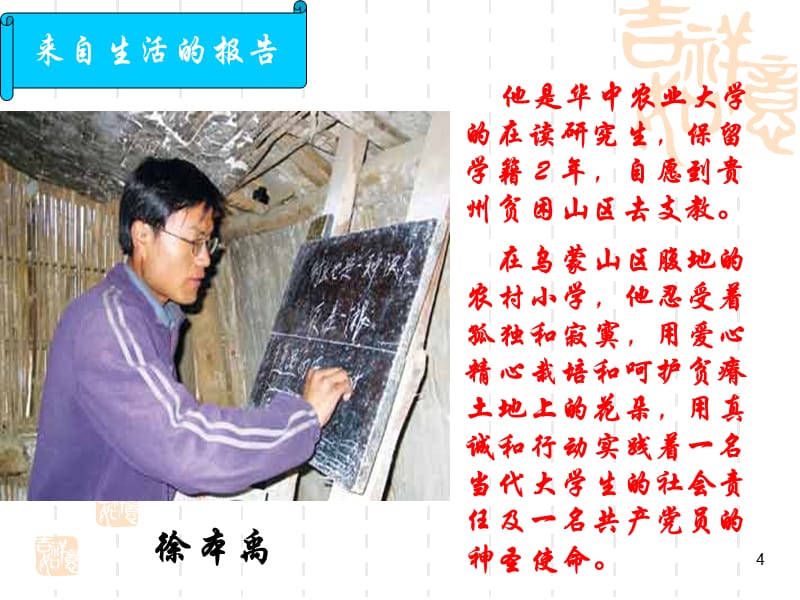 来自生活的报告
他是华中农业大学
的在读研究生，保留
学籍2年，自愿到贵
州贫困山区去支教。
在乌蒙山区腹地的
农村小学，他忍受着
孤独和寂寞，用爱心
精心栽培和呵护贫瘠
土地上的花朵，用真
诚和行动实践着一名
当代大学生的社会责
任及一名共产党员的
神圣使命。
徐本禹
4
吉祥
如意